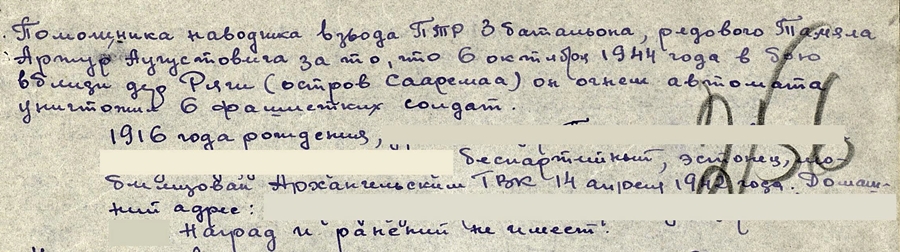 Помощника наводчика взвода ПТР 3 батальона, рядового Тамяла
Артур Аугустовича за то, что 6 октября 1944 года в бою
вблизи дер Ряги (остров Сааремаа) он огнем автомата
уничтожил 6 фашистких солдат.
1916 года рождения,
беспартийный, эстонец, мо-
билизован Архангельским ТВК 14 апреля 1942 года. Домаш-
ний адрес:
Наград и ранений не имеет.